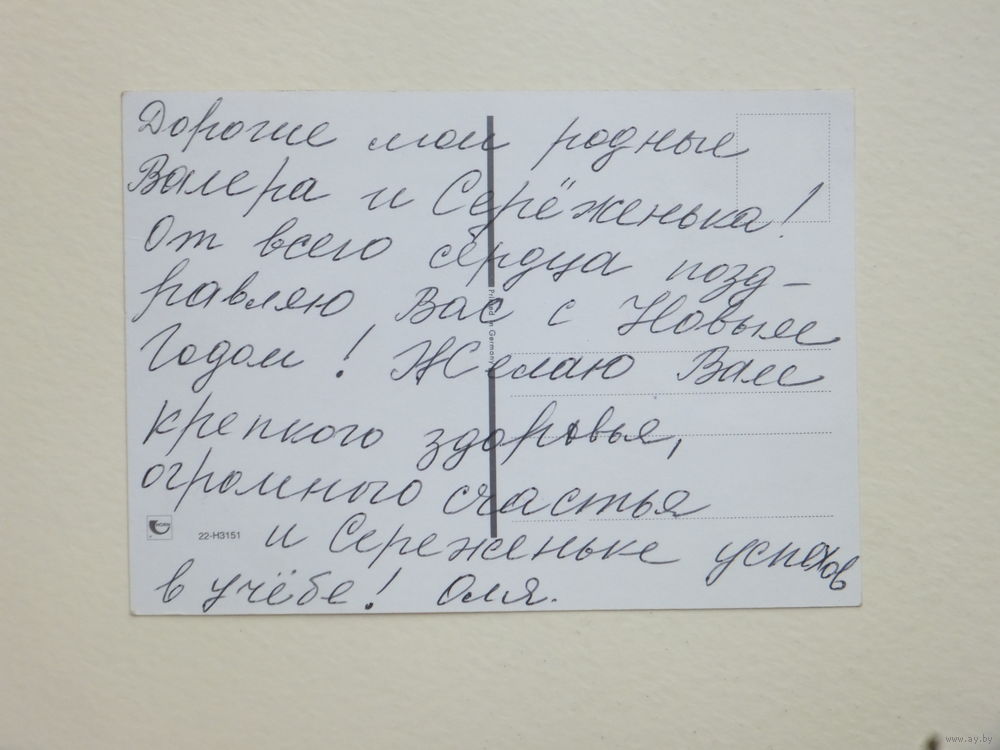 Дорогие мои родные
Валера и Серёженька!
От всего сердца позд-
равляю Вас с Новым
Годом! Желаю Вам
крепкого здоровья,
огромного счастья
и Сереженьке успехов
в учёбе! Оля.
Printed in Germany
22-H3151
www.ay.by